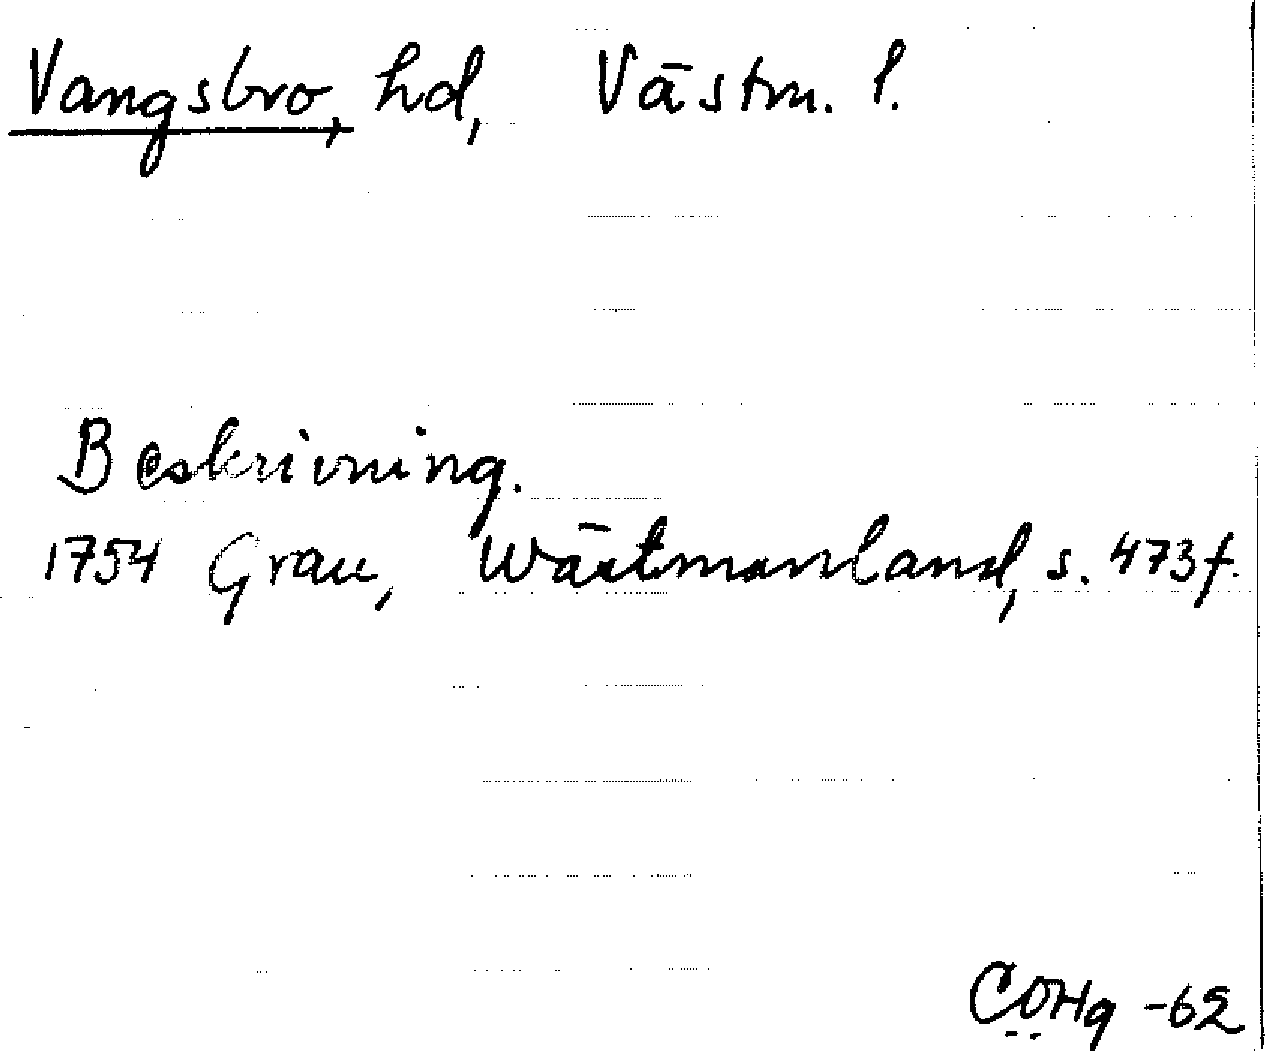 Vangsbro, hd, Västm. l.
Beskrivning.
1754 Grau, Wästmanland, s. 473f.
COHg -62